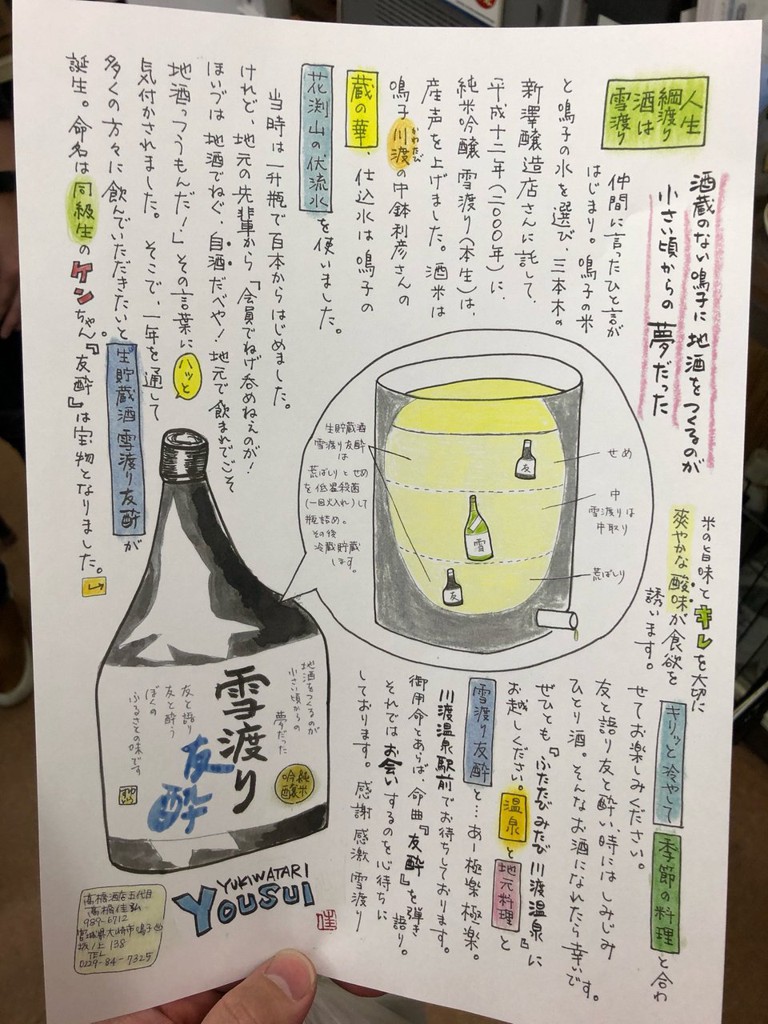 人生
綱渡り
酒は
雪渡り
酒蔵のない鳴子に地酒をつくるのが
小さい頃からの夢だった
仲間に言ったひと言が
はじまり。鳴子の米
と鳴子の水を選び、三本木の
新澤醸造店さんに託して、
平成十二年(二〇〇〇年)に、
純米吟醸 雪渡り(本生)は、
産声を上げました。酒米は
鳴子川渡の中鉢利彦さんの
かわたび
蔵の華、仕込水は鳴子の
花渕山の伏流水を使いました。
当時は一升瓶で百本からはじめました。
けれど、地元の先輩から「会員でねげ呑めねぇのが!
ほいづは地酒でねぐ、自酒だべや!地元で飲まれでこそ
地酒っつうもんだ!」その言葉に ハッと
気付かされました。そこで、一年を通して
多くの方々に飲んでいただきたいと 生貯蔵酒 雪渡り友酔が
誕生。命名は同級生のケンちゃん『友酔』は宝物となりました。
生貯蔵酒
雪渡り友酔
は
荒ばしりとせめ
を低温殺菌
(一回火入れ)して
瓶詰め。
その後
冷蔵貯蔵
します。
せめ
中
雪渡りは
中取り
荒ばしり
友
雪
友
米の旨味とキレを大切に
爽やかな酸味が食欲を
誘います。
キリッと冷やして 季節の料理と合わ
せてお楽しみください。
友と語り友と酔い、時にはしみじみ
ひとり酒。そんなお酒になれたら幸いです。
ぜひとも『ふたたびみたび川渡温泉』に
お越しください。温泉と地元料理と
雪渡り友酔と…あー極楽極楽。
川渡温泉駅前でお待ちしております。
御用命とあらば、命曲『友酔』を弾き語り。
それではお会いするのを心待ちに
しております。感謝感激 雪渡り
地酒をつくるのが
小さい頃からの
夢だった
雪渡り
友酔
友と語り
友と酔う
ぼくの
ふるさとの味です
純米
吟醸
YUKIWATARI
YOUSUI
佳
髙橋酒店五代目
髙橋佳弘
989-6712
宮城県大崎市鳴子
坂ノ上 138
TEL
0229-84-7325